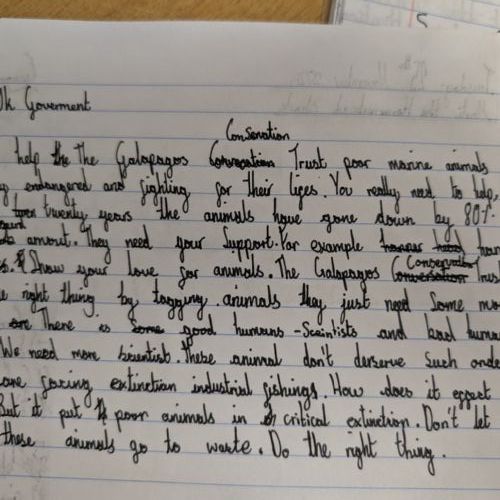 Uk Goverment
Consevation
help the The Galapagos Trust poor marine animals
endangered and fighting for their lifes. You really need to help,
twenty years the animals have gone down by 80%
amout. They need your Support. For example
Show your love for animals. The Galapagos Consevation Trus
right thing by tagging. animals they just need Some mo
There is some good humans - Scientists and bad huma
We need more scientist. These animal don't derserve Such
facing extinction industrial fishings. How does it effect
But it put poor animals in critical extinction. Don't let
these animals go to waste. Do the right thing.